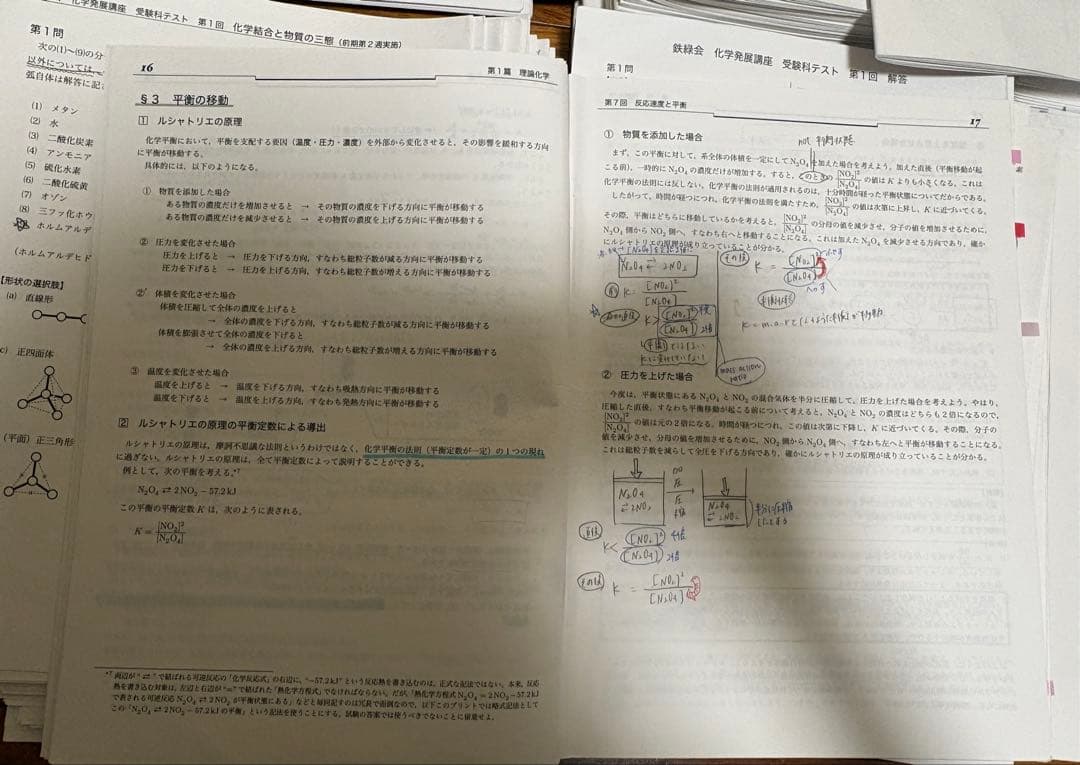 化学発展講座 受験科テスト 第1回 化学結合と物質の三態(前期第2週実施)
第1問
次の(1)〜(9)の分
以外については
弧自体は解答に記
(1) メタン
(2) 水
(3) 二酸化炭素
(4) アンモニア
(5) 硫化水素
(6) 二酸化硫黄
(7) オゾン
(8) 三フッ化ホウ
ホルムアルデ
(ホルムアルデヒド
【形状の選択肢】
(a) 直線形
正四面体
(平面)正三角形
16
第1篇 理論化学
§3 平衡の移動
1 ルシャトリエの原理
化学平衡において,平衡を支配する要因(温度・圧力・濃度)を外部から変化させると,その影響を緩和する方向
に平衡が移動する。
具体的には,以下のようになる。
① 物質を添加した場合
ある物質の濃度だけを増加させると → その物質の濃度を下げる方向に平衡が移動する
ある物質の濃度だけを減少させると → その物質の濃度を上げる方向に平衡が移動する
② 圧力を変化させた場合
圧力を上げると → 圧力を下げる方向,すなわち総粒子数が減る方向に平衡が移動する
圧力を下げると → 圧力を上げる方向,すなわち総粒子数が増える方向に平衡が移動する
②' 体積を変化させた場合
体積を圧縮して全体の濃度を上げると
→ 全体の濃度を下げる方向,すなわち総粒子数が減る方向に平衡が移動する
体積を膨張させて全体の濃度を下げると
→ 全体の濃度を上げる方向,すなわち総粒子数が増える方向に平衡が移動する
③ 温度を変化させた場合
温度を上げると → 温度を下げる方向,すなわち吸熱方向に平衡が移動する
温度を下げると → 温度を上げる方向,すなわち発熱方向に平衡が移動する
2 ルシャトリエの原理の平衡定数による導出
ルシャトリエの原理は,摩訶不思議な法則というわけではなく,化学平衡の法則(平衡定数が一定)の1つの現れ
に過ぎない。ルシャトリエの原理は,全て平衡定数によって説明することができる。
例として,次の平衡を考える。*7
N₂O₄ ⇄ 2NO₂ − 57.2kJ
この平衡の平衡定数 K は,次のように表される。
K = [NO₂]²/[N₂O₄]
*7 両辺が"⇄"で結ばれる可逆反応の「化学反応式」の右辺に,"−57.2kJ"という反応熱を書き込むのは,正式な記法ではない。本来,反応
熱を書き込む対象は,左辺と右辺が"="で結ばれた「熱化学方程式」でなければならない。だが,「熱化学方程式 N₂O₄ = 2NO₂−57.2kJ
で表される可逆反応 N₂O₄ ⇄ 2NO₂ が平衡状態にある」などと毎回記すのは冗長で面倒なので,以下このプリントでは略式記法として
この「N₂O₄ ⇄ 2NO₂ − 57.2kJ の平衡」という記法を使うことにする。試験の答案では使うべきでないことに留意せよ。
鉄緑会 化学発展講座 受験科テスト 第1回 解答
第1問
第7回 反応速度と平衡
17
① 物質を添加した場合
not 平衡状態
まず,この平衡に対して,系全体の体積を一定にして N₂O₄ を加えた場合を考えよう。加えた直後(平衡移動が起
こる前),一時的に N₂O₄ の濃度だけが増加する。すると,このときの [NO₂]²/[N₂O₄] の値は K よりも小さくなる。これは
化学平衡の法則には反しない。化学平衡の法則が適用されるのは,十分時間が経った平衡状態についてだからである。
したがって,時間が経つにつれ,化学平衡の法則を満たすため,[NO₂]²/[N₂O₄] の値は次第に上昇し,K に近づいてくる。
その際,平衡はどちらに移動しているかを考えると,[NO₂]²/[N₂O₄] の分母の値を減少させ,分子の値を増加させるために,
N₂O₄ 側から NO₂ 側へ,すなわち右へと移動することになる。これは加えた N₂O₄ を減少させる方向であり,確か
にルシャトリエの原理が成り立っていることが分かる。
N₂O₄ ⇄ 2NO₂
前 K = [NO₂]²/[N₂O₄]
K > [NO₂]²/[N₂O₄]
その後 K = [NO₂]²/[N₂O₄]
平衡状態
mass action ratio
② 圧力を上げた場合
今度は,平衡状態にある N₂O₄ と NO₂ の混合気体を半分に圧縮して,圧力を上げた場合を考えよう。やはり,
圧縮した直後,すなわち平衡移動が起こる前について考えると,N₂O₄ と NO₂ の濃度はどちらも2倍になるので,
[NO₂]²/[N₂O₄] の値は元の2倍になる。時間が経つにつれ,この値は次第に下降し,K に近づいてくる。その際,分子の
値を減少させ,分母の値を増加させるために,NO₂ 側から N₂O₄ 側へ,すなわち左へと平衡が移動することになる。
これは総粒子数を減らして全圧を下げる方向であり,確かにルシャトリエの原理が成り立っていることが分かる。
N₂O₄ ⇄ 2NO₂
加圧
圧縮
N₂O₄ ⇄ 2NO₂
直後 K < [NO₂]²/[N₂O₄] 4倍 2倍
その後 K = [NO₂]²/[N₂O₄]